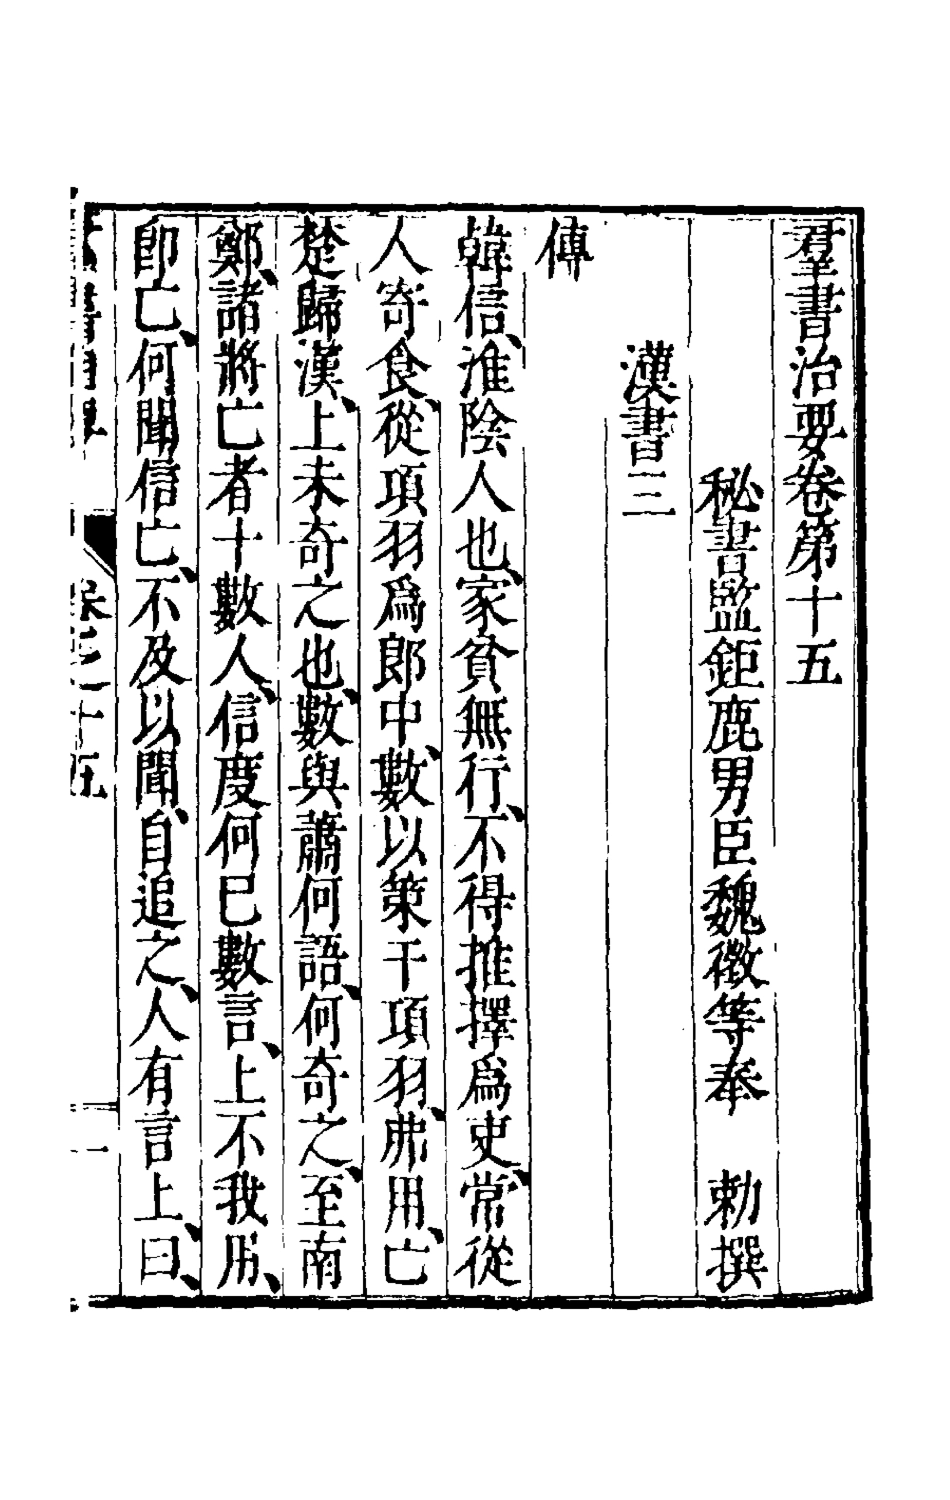 羣書治要卷第十五
秘書監鉅鹿男臣魏徵等奉　勅撰
漢書三
傳
韓信、淮陰人也、家貧無行、不得推擇爲吏、常從
人寄食、從項羽爲郎中、數以策干項羽、弗用、亡
楚歸漢、上未奇之也、數與蕭何語、何奇之、至南
鄭、諸將亡者十數人、信度何已數言、上不我用、
卽亡、何聞信亡、不及以聞、自追之、人有言上曰、
卷之十五
一